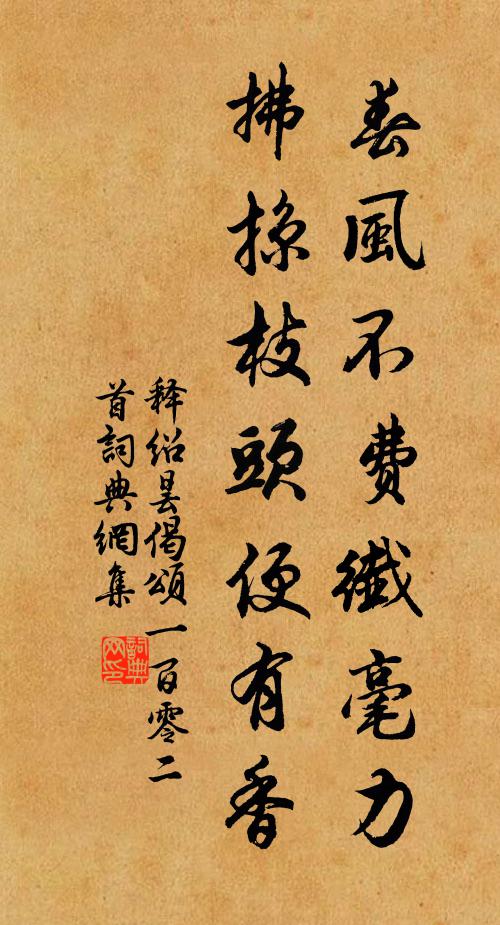 春風不費纖毫力
拂掠枝頭便有香
释绍昙偈頌一百零二
首詞典網集
詞典
网印